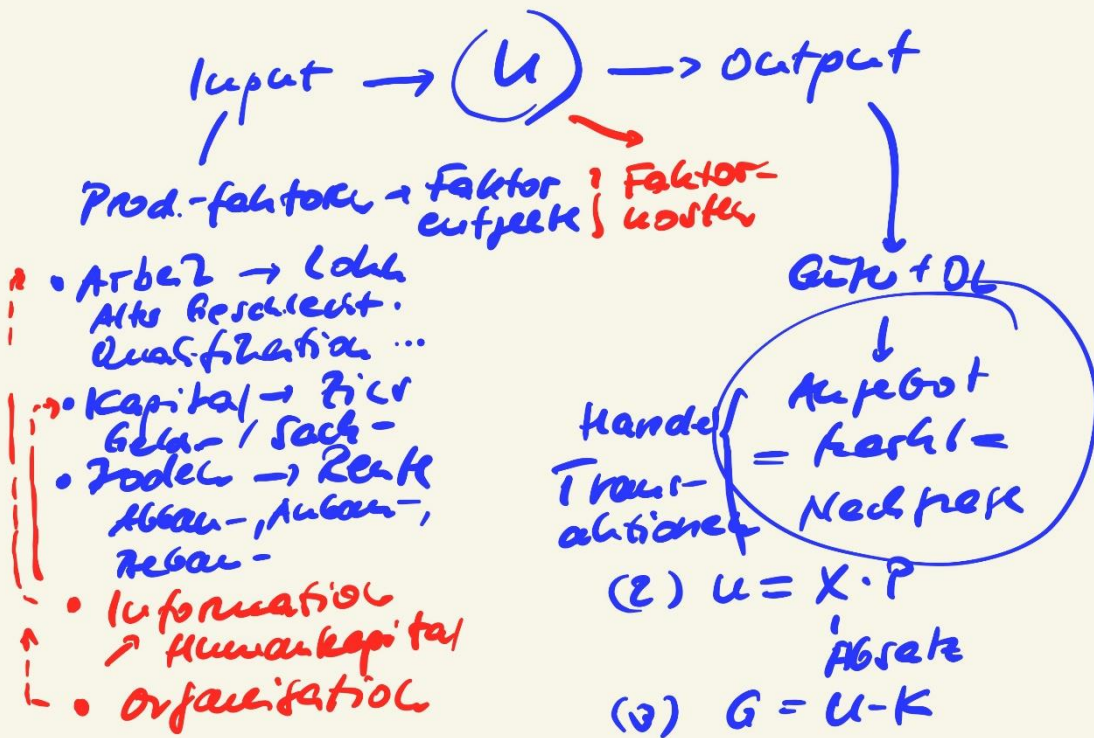 Input → U → Output
Prod.-faktoren → Faktor
entgelte
Faktor-
kosten
• Arbeit → Lohn
Alter Geschlecht.
Qualifikation ...
• Kapital → Zins
Geld- / Sach-
• Boden → Rente
Abbau-, Anbau-,
Bebau-
• Information
↗ Humankapital
• Organisation
Güter + DL
↓
Angebot
= Markt =
Nachfrage
Handel
Trans-
aktionen
(2) U = X · P
Absatz
(3) G = U - K